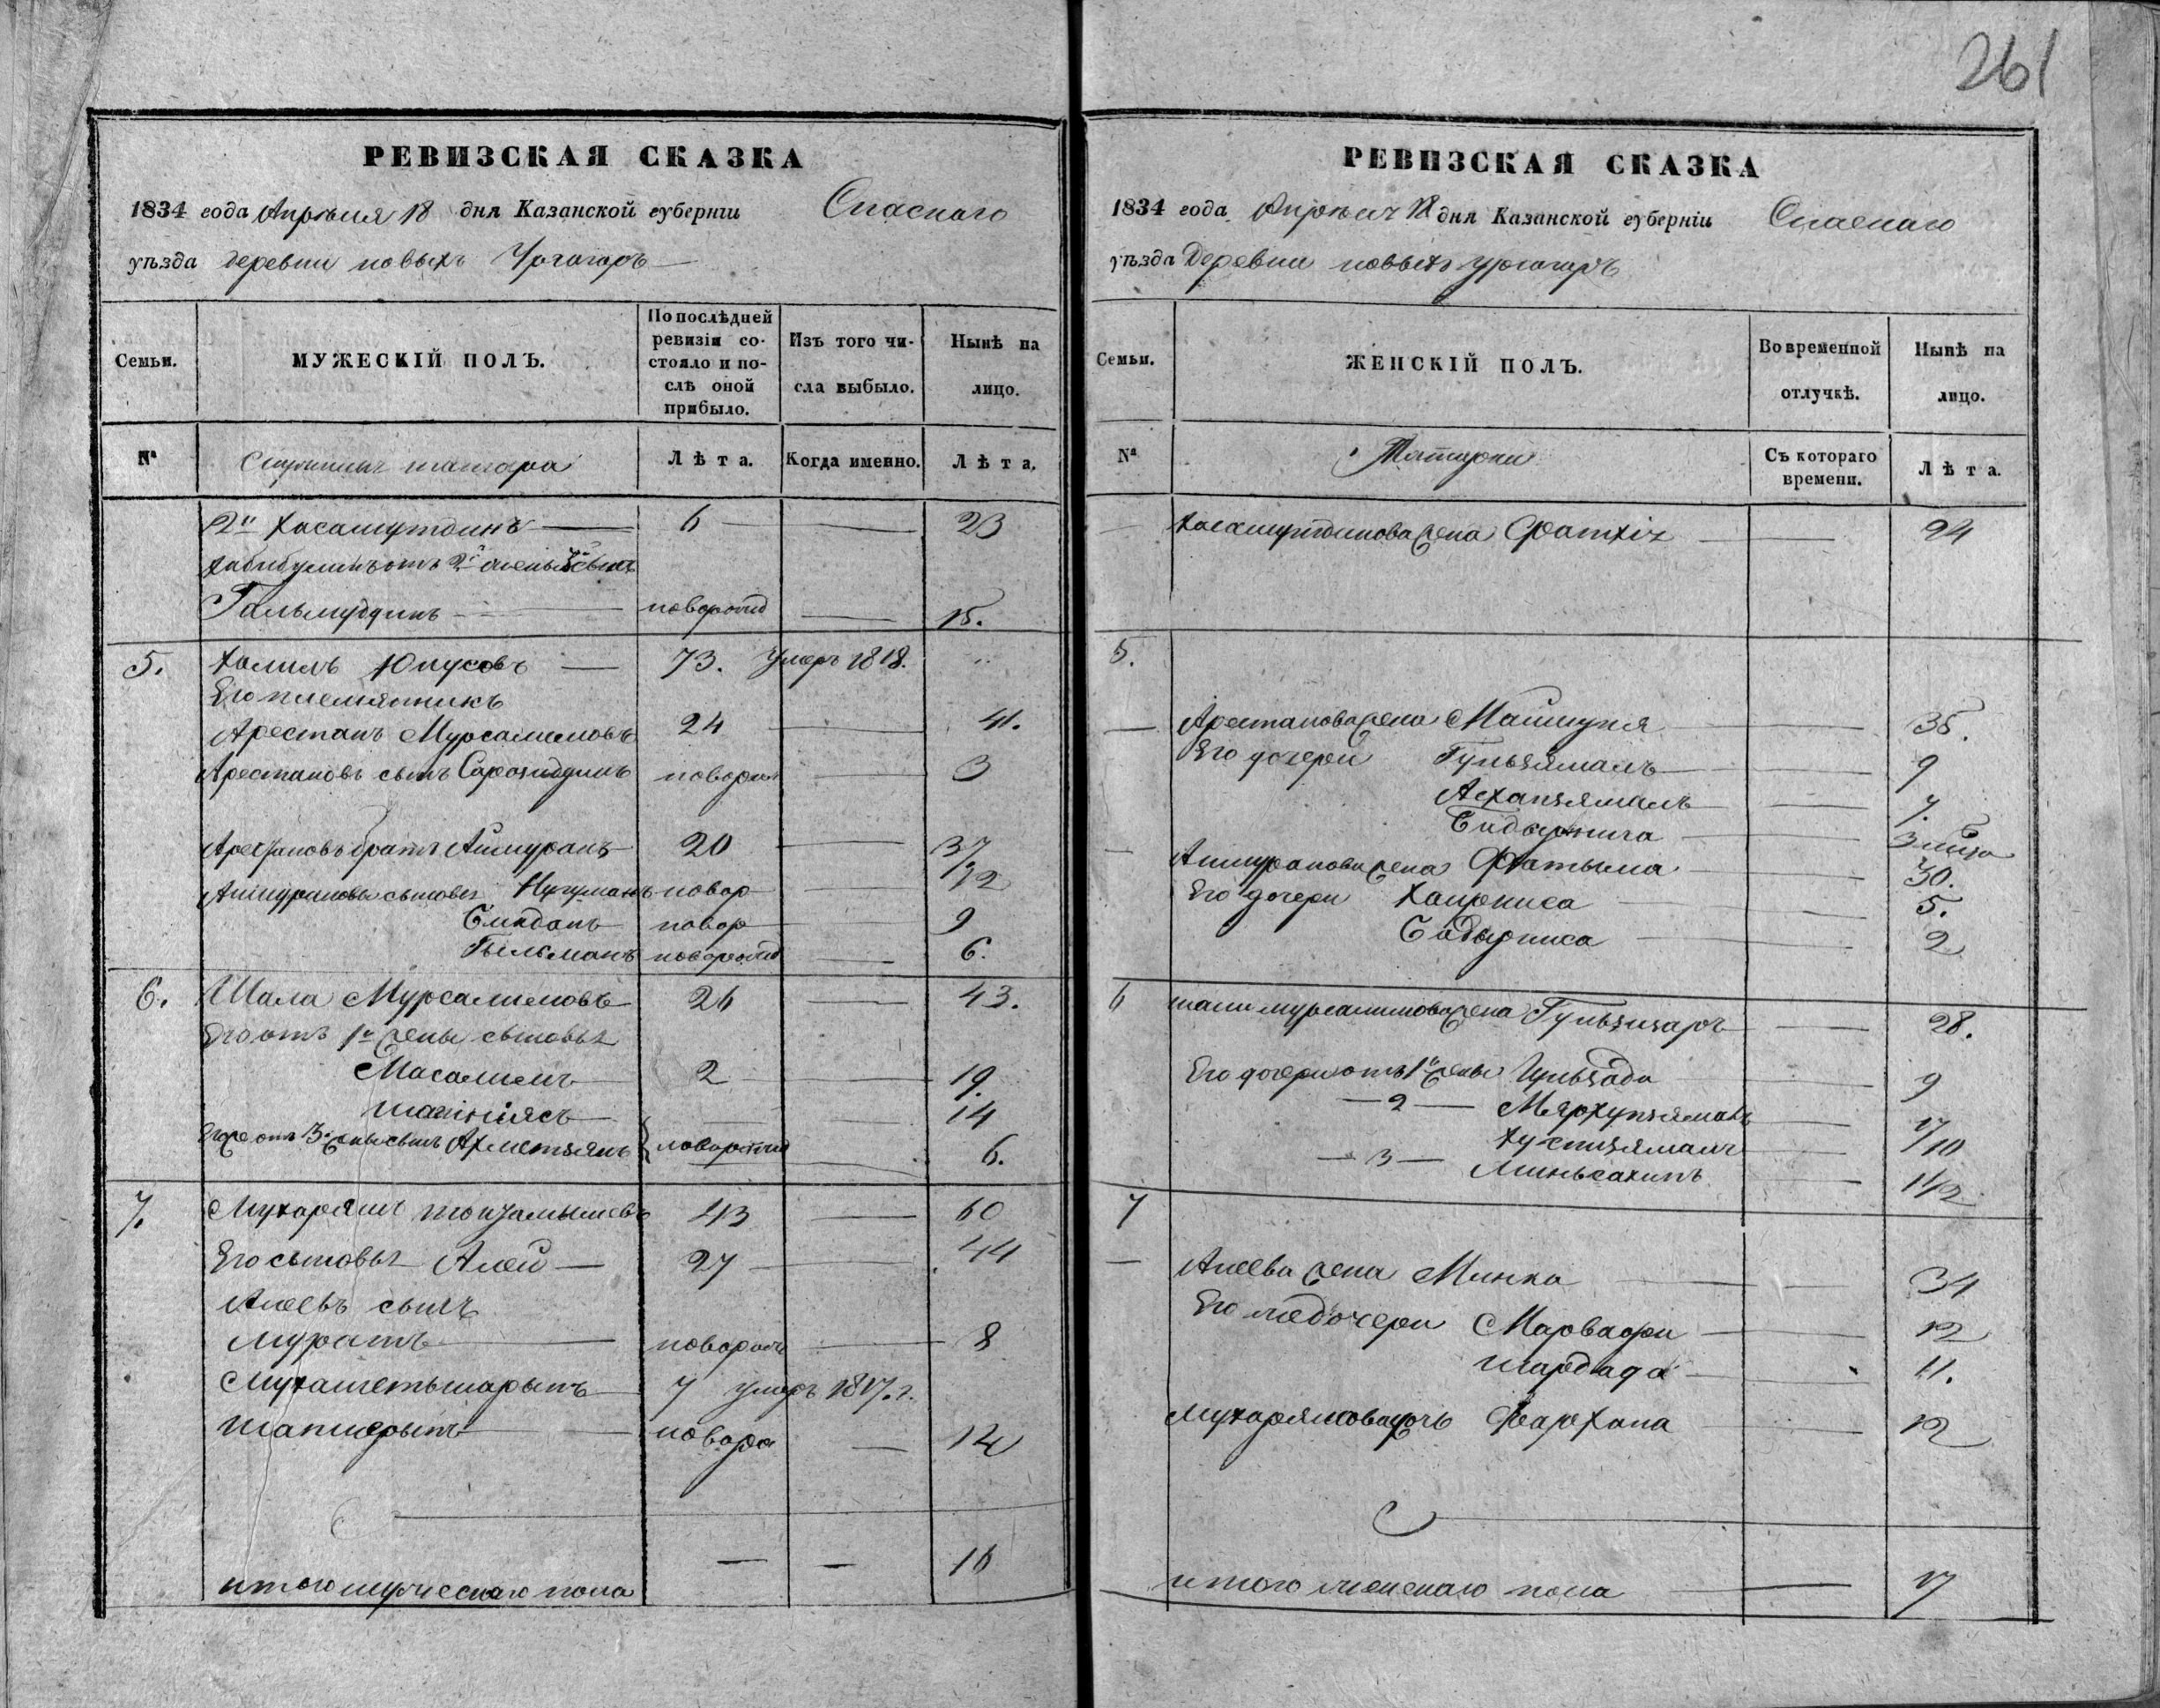 261
РЕВИЗСКАЯ СКАЗКА
1834 года Апрѣля 18 дня Казанской губерніи Спаскаго
уѣзда деревни новыхъ Ургагаръ
Семьи.
МУЖЕСКІЙ ПОЛЪ.
По послѣдней ревизіи состояло и послѣ оной прибыло.
Изъ того числа выбыло.
Нынѣ на лицо.
№
татара
Лѣта.
Когда именно.
Лѣта.
2й Хасамутдинъ 6 23
Хабибулинъ отъ 2й жены сынъ
Гальмутдинъ новорожд 15.
5. Халилъ Юнусовъ 73. умеръ 1818.
Его племянникъ
Арестанъ Мурсалимовъ 24 41.
Арестановъ сынъ новорож 3
Арестановъ братъ Аитуранъ 20 37
сыновья Нугуманъ новор 12
новор 9
новорожд 6.
6. Шала Мурсалимовъ 26 43.
Его отъ 1й жены сыновья
Масалимъ 2 19.
14
Его же отъ 3й жены сынъ Ахметзянъ новорожд 6.
7. Мухарямъ 43 60
Его сыновья Алей 27 44
Алеевъ сынъ
Муратъ новорож 8
Мухаметшарыпъ 7 умеръ 1817. г.
новоро 14
16
итого мужескаго пола
РЕВИЗСКАЯ СКАЗКА
1834 года Апрѣля 18 дня Казанской губерніи Спаскаго
уѣзда Деревни новыхъ Ургагаръ
Семьи.
ЖЕНСКІЙ ПОЛЪ.
Во временной отлучкѣ.
Нынѣ на лицо.
№
Татарки
Съ котораго времени.
Лѣта.
Хасамутдинова жена Фатхія 24
5.
Арестанова жена Маймуня 35.
Его дочери Гульзямалъ 9
Асханзямалъ 7.
3 мѣся
Аитуранова жена Фатыма 30.
Его дочери Хаирниса 5.
Бадырниса 2
6 Шали Мурсалимова жена Гульзизаръ 28.
Его дочери отъ 1й жены 9
2 17
10
3 Миньсахипъ 1 1/2
7
Алеева жена Минка 34
Его же дочери Марвафи 12
11.
Мухарямова дочь Фархана 12
итого женскаго пола 17